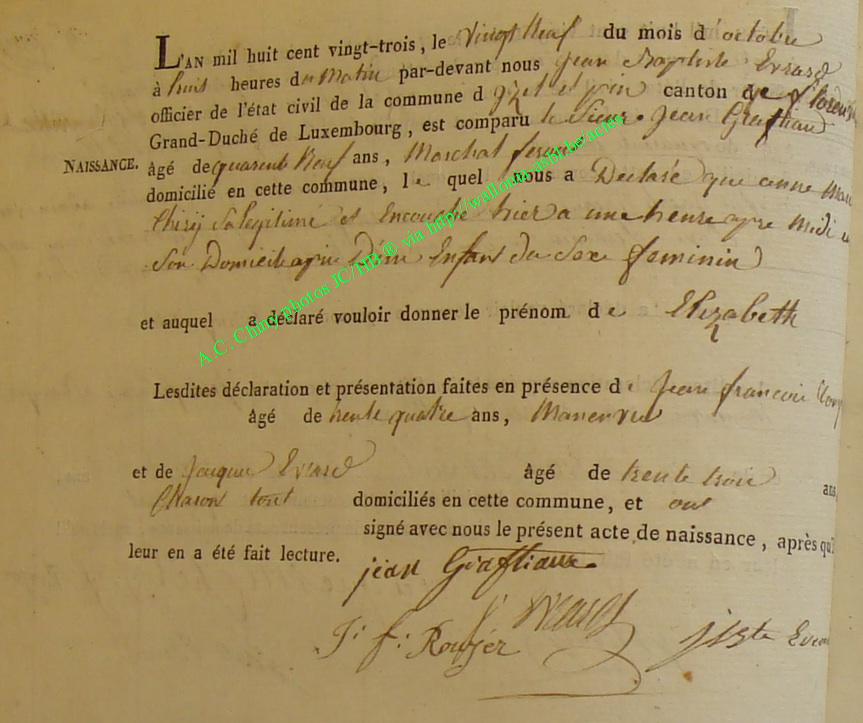 L'AN mil huit cent vingt-trois, le Vingt Neuf du mois d'octobre
à huit heures du Matin par-devant nous Jean Baptiste Evrard
officier de l'état civil de la commune d' et pin canton de
Grand-Duché de Luxembourg, est comparu le Sieur Jean
NAISSANCE. âgé de quarente Neuf ans, Marchal
domicilié en cette commune, le quel nous a Declaré que anne
Thiry Salegitime et Encouché hier a une heure apre Midi
Son Domicil a pin D'un Enfant du Sexe feminin
et auquel a déclaré vouloir donner le prénom de Elizabeth
Lesdites déclaration et présentation faites en présence de Jean francois
âgé de trente quatre ans, Manenvre
et de Jacque Evrard âgé de trente trois ans,
Charon tout domiciliés en cette commune, et ont
signé avec nous le présent acte de naissance, après qu'
leur en a été fait lecture.
jean Graftiaux
J: f: Evrard
A.C. Chiny photos JC/HB ® via http://wallonia.asbl.be/actes